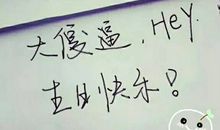 大傻逼,Hey.
生日快乐!